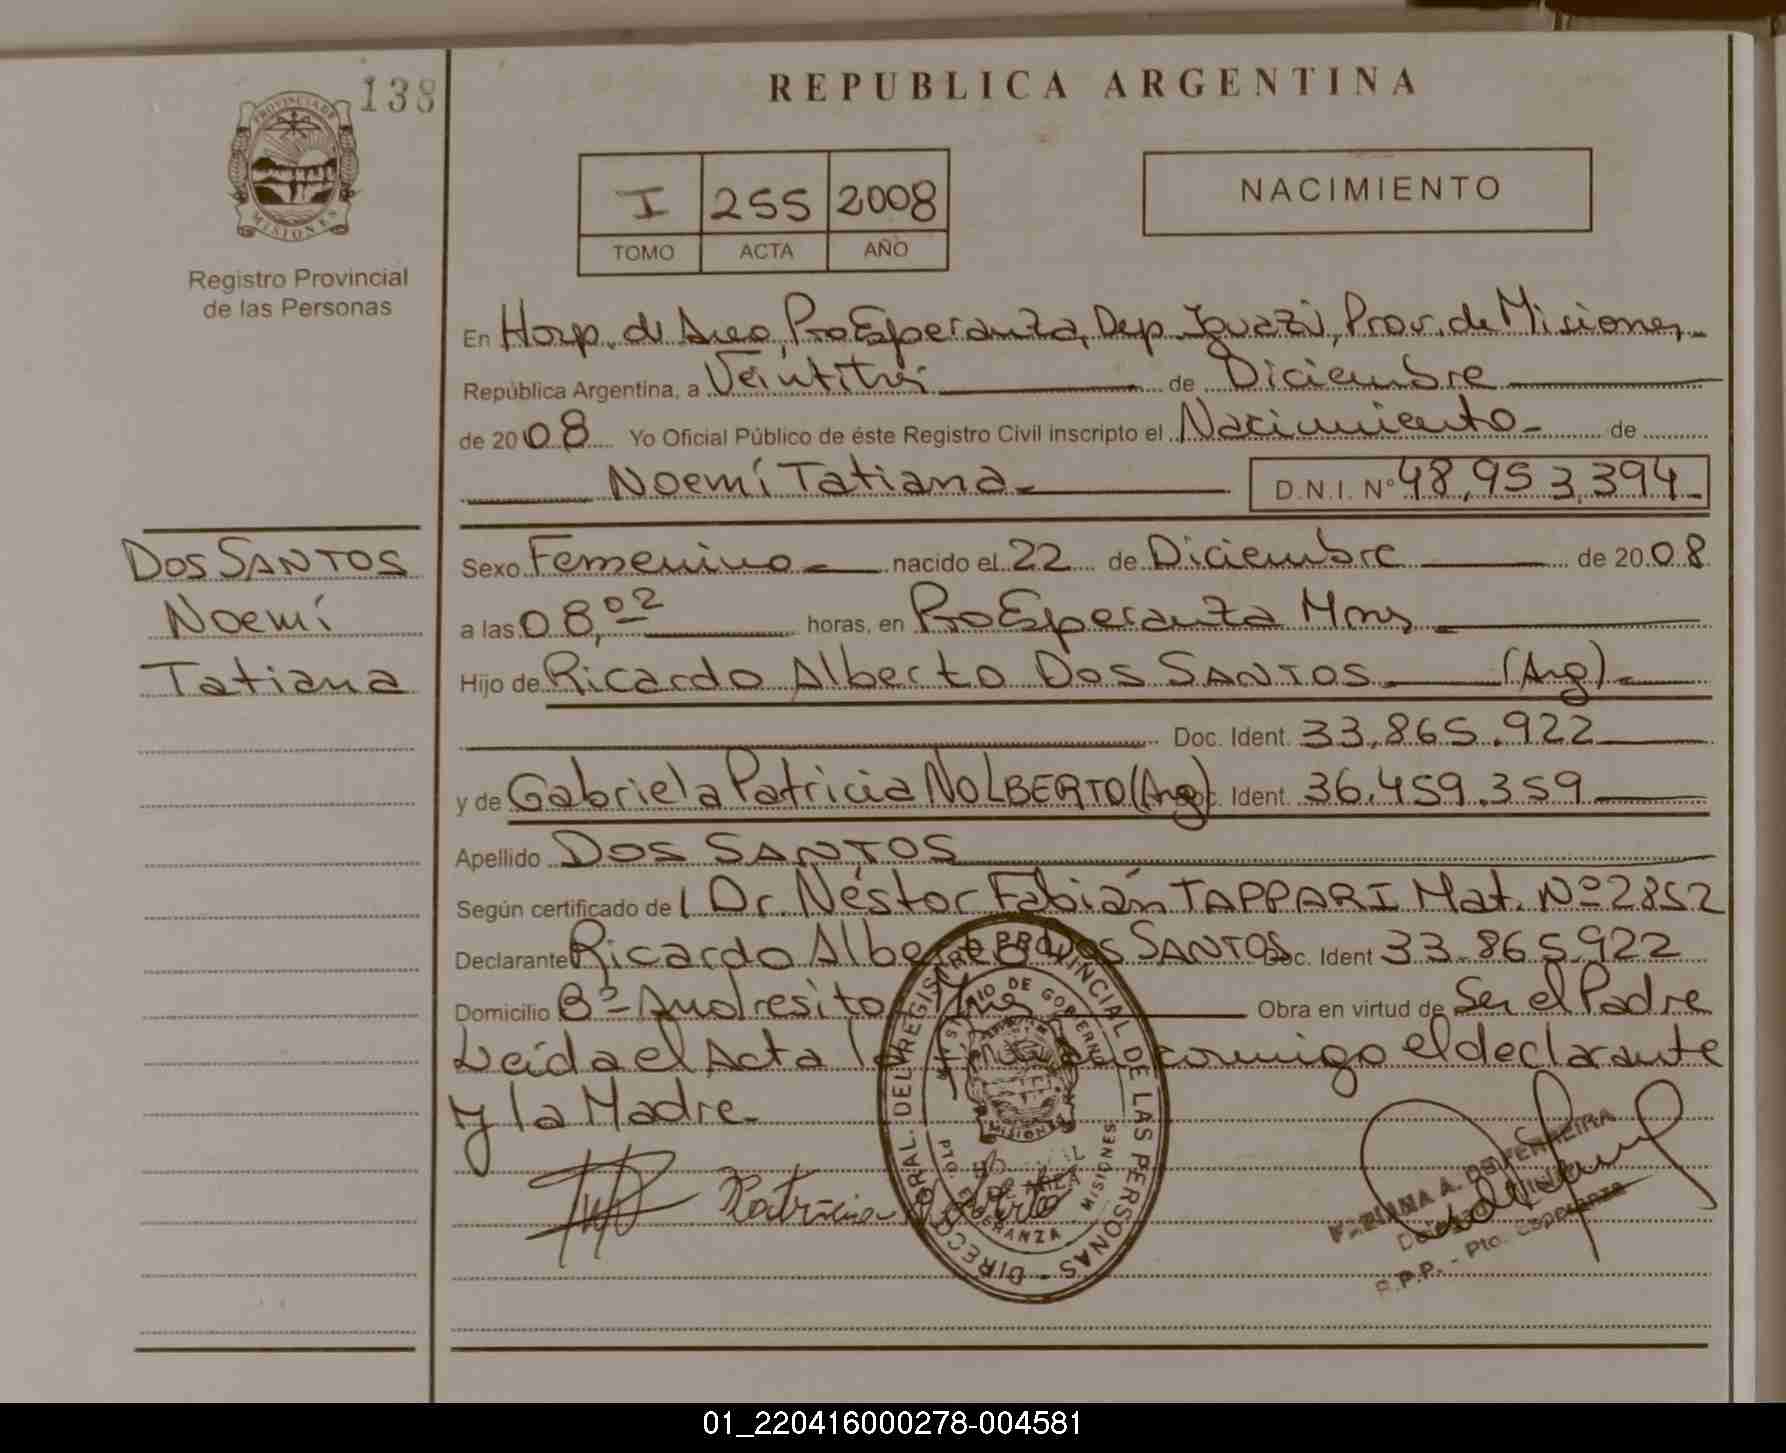 138
PROVINCIA DE
MISIONES
Registro Provincial
de las Personas
REPUBLICA ARGENTINA
I 255 2008
TOMO ACTA AÑO
NACIMIENTO
En Hosp. de Area, Pto Esperanza, Dep. Iguazú, Prov. de Misiones
República Argentina, a Veintitrés de Diciembre
de 2008 Yo Oficial Público de éste Registro Civil inscripto el Nacimiento de
Noemí Tatiana D.N.I. Nº 48,953,394
DOS SANTOS
Noemí
Tatiana
Sexo Femenino nacido el 22 de Diciembre de 2008
a las 08,02 horas, en Pto Esperanza Mnes
Hijo de Ricardo Alberto DOS SANTOS (Arg)
Doc. Ident. 33.865.922
y de Gabriela Patricia NOLBERTO (Arg) Doc. Ident. 36.459.359
Apellido DOS SANTOS
Según certificado del Dr. Néstor Fabián TAPPARI Mat. Nº 2852
Declarante Ricardo Alberto DOS SANTOS Doc. Ident 33.865.922
Domicilio Bº Andresito Obra en virtud de Ser el Padre
Leída el Acta la conmigo el declarante
y la Madre
Patricia Nolberto
DIRECC GRAL. DEL REGISTRO PROVINCIAL DE LAS PERSONAS
MINISTERIO DE GOBIERNO
MISIONES
PTO. ESPERANZA - MISIONES
DE AREA
A. DE FERREIRA
R.P.P. - Pto. Esperanza
01_220416000278-004581